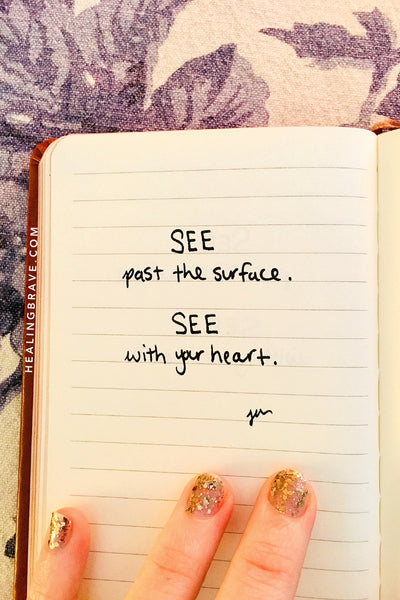 SEE
past the surface.
SEE
with your heart.
jen
HEALINGBRAVE.COM